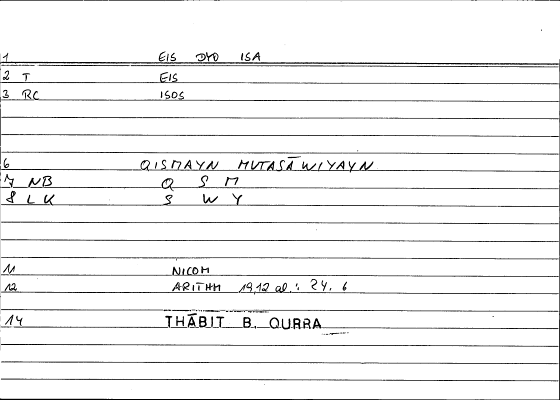 1 EIS DYO ISA
2 T EIS
3 RC ISOS
6 QISMAYN MUTASĀWIYAYN
7 NB Q S M
8 LK S W Y
11 NICOM
12 ARITHM 19,12 al.: 24, 6
14 THĀBIT B. QURRA